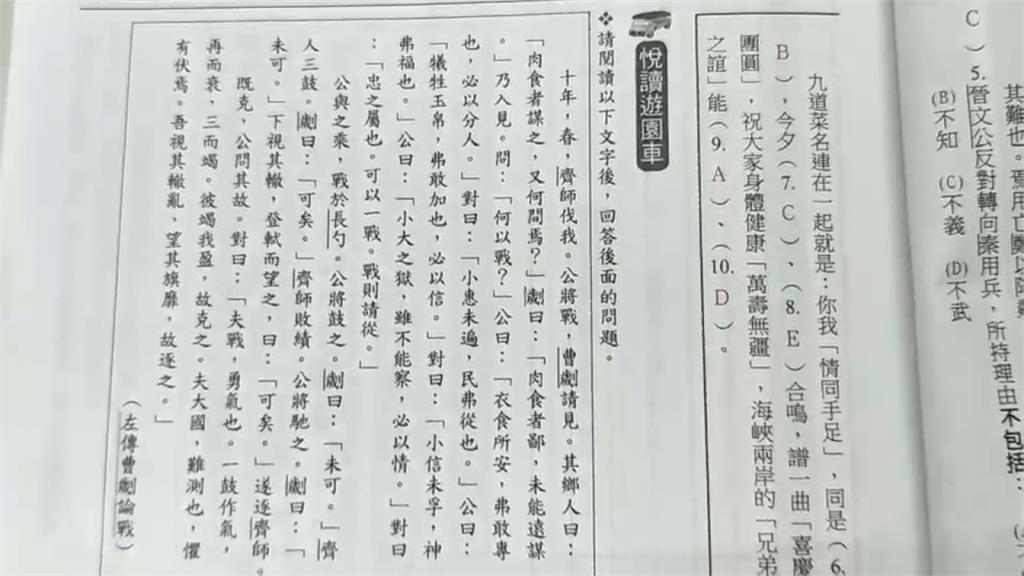 C
)
5.
晉文公反對轉向秦用兵，所持理由不包括：
(B)不知　(C)不義　(D)不武
九道菜名連在一起就是：你我「情同手足」，同是（6.
B），今夕（7. C）、（8. E）合鳴，譜一曲「喜慶
團圓」，祝大家身體健康「萬壽無疆」，海峽兩岸的「兄弟
之誼」能（9. A）、（10. D）。
悅讀遊園車
❖請閱讀以下文字後，回答後面的問題。
十年，春，齊師伐我。公將戰，曹劌請見。其鄉人曰：
「肉食者謀之，又何間焉？」劌曰：「肉食者鄙，未能遠謀
。」乃入見。問：「何以戰？」公曰：「衣食所安，弗敢專
也，必以分人。」對曰：「小惠未遍，民弗從也。」公曰：
「犧牲玉帛，弗敢加也，必以信。」對曰：「小信未孚，神
弗福也。」公曰：「小大之獄，雖不能察，必以情。」對曰
：「忠之屬也。可以一戰。戰則請從。」
公與之乘，戰於長勺。公將鼓之。劌曰：「未可。」齊
人三鼓。劌曰：「可矣。」齊師敗績。公將馳之。劌曰：「
未可。」下視其轍，登軾而望之，曰：「可矣。」遂逐齊師。
既克，公問其故。對曰：「夫戰，勇氣也。一鼓作氣，
再而衰，三而竭。彼竭我盈，故克之。夫大國，難測也，懼
有伏焉。吾視其轍亂，望其旗靡，故逐之。」
（左傳曹劌論戰）